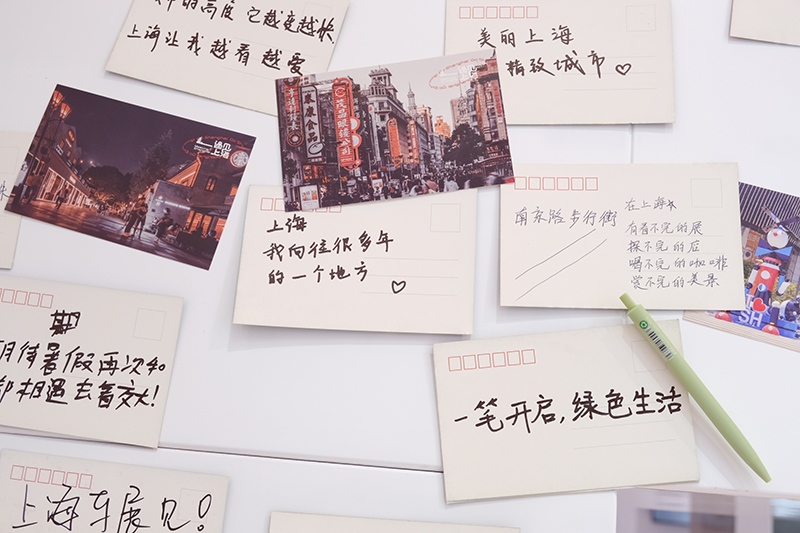 的高度 它越变越快.
上海让我越看越爱
美丽上海
精致城市♡
遇见
上海
茂昌眼镜公司
泰康食品
上海
我向往很多年
的一个地方
♡
南京路步行街
在上海
有看不完的展
探不完的店
喝不完的咖啡
赏不完的美景
期
期待暑假再次和
相遇去看交大!
一笔开启,绿色生活
上海车展见!
SH